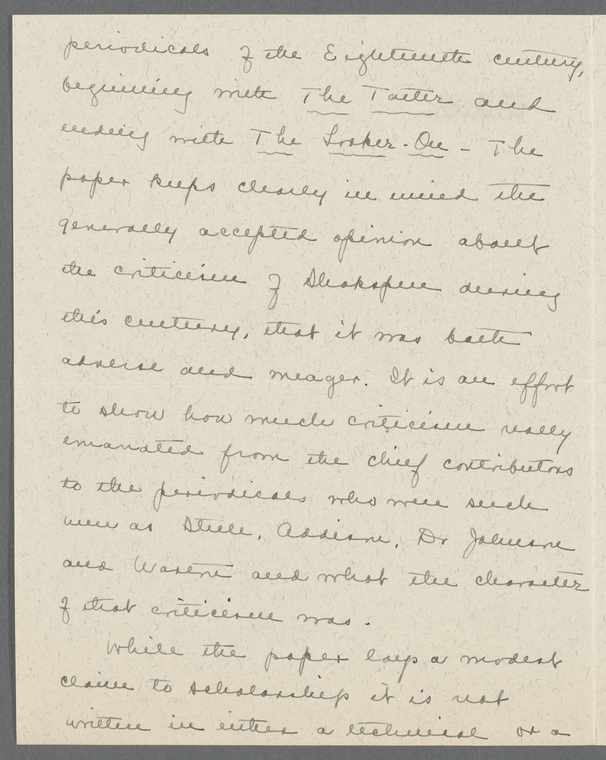 periodicals of the Eighteenth century,
beginning with The Tatler and
ending with The Looker-On - The
paper keeps clearly in mind the
generally accepted opinion about
the criticism of Shakspere during
this century, that it was both
adverse and meager. It is an effort
to show how much criticism really
emanated from the chief contributors
to the periodicals who were such
men as Steele, Addison, Dr Johnson
and Warton and what the character
of that criticism was.
While the paper lays a modest
claim to scholarship it is not
written in either a technical or a